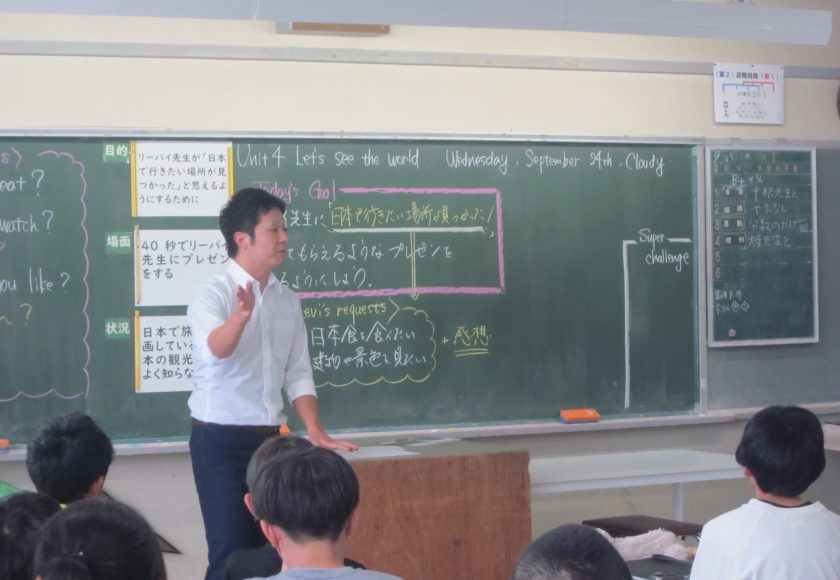 eat?
watch?
you like?
~?
目的
リーバイ先生が「日本
で行きたい場所が見
つかった」と思えるよ
うにするために
場面
40 秒でリーバイ
先生にプレゼン
をする
状況
日本で旅
画してい
本の観光
よく知らな
Unit 4 Let's see the world. Wednesday, September 24th, Cloudy.
Today's Goal
先生に「日本で行きたい場所が見つかった!」
てもらえるようなプレゼンを
るようにしよう。
evi's requests>
日本食を食べたい
建物や景色を見たい
+ 感想
Super
challenge
(第2) 避難経路 (第1)
1
2
3
4
5
6